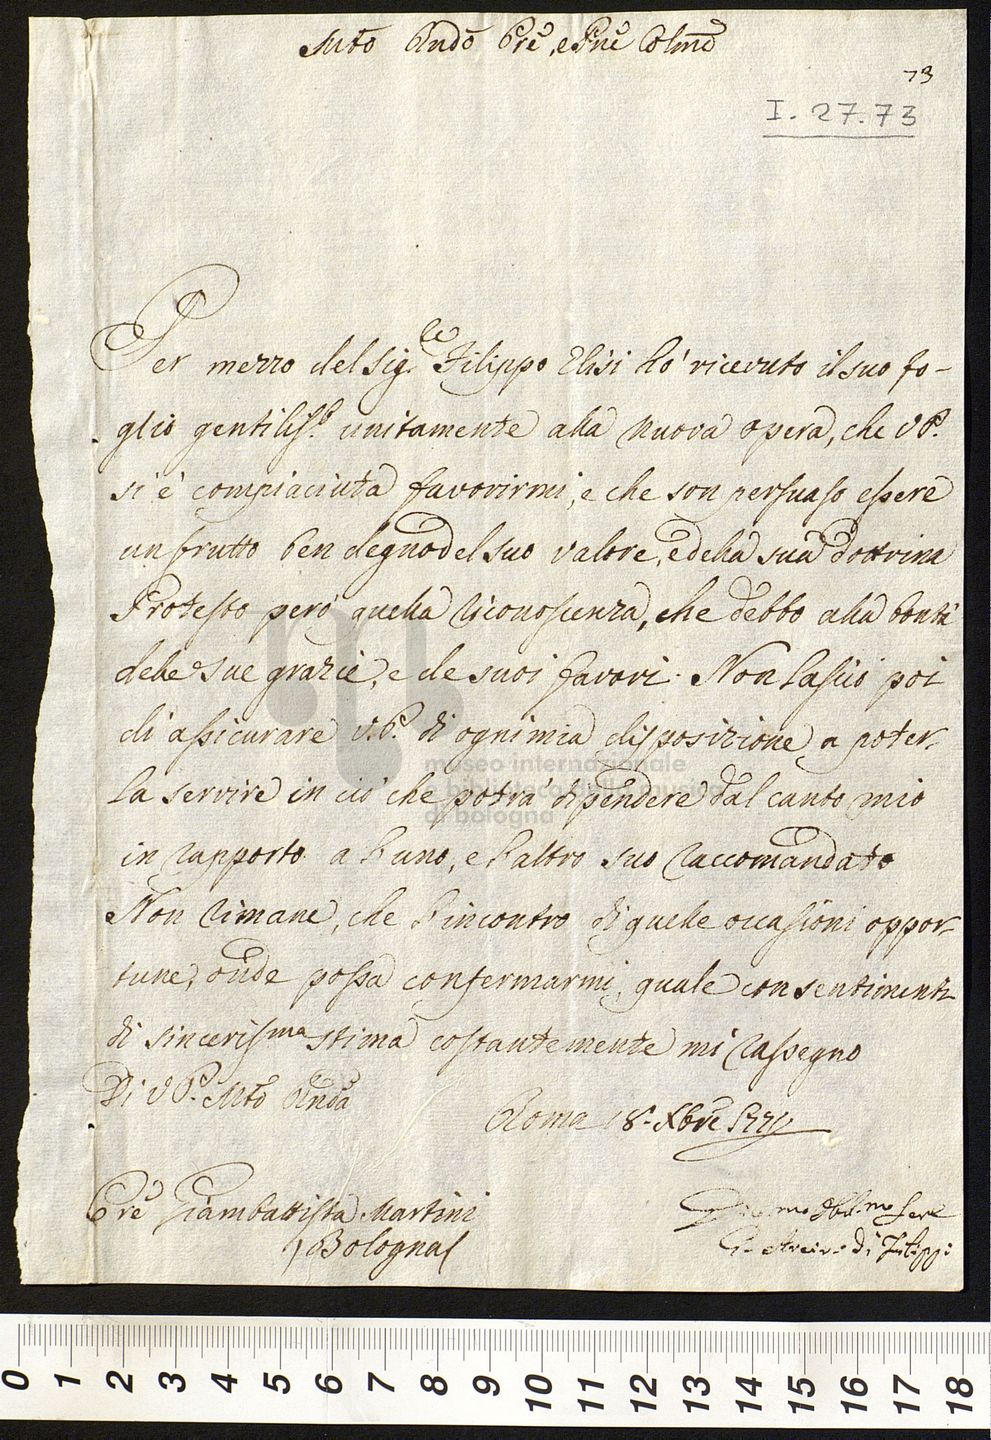 Mto Rndo Pre, e Pne Colmo
73
I. 27.73
Per mezzo del Sigre Filippo Elisi hò ricevuto il suo fo-
glio gentilissº. unitamente alla nuova opera, che V.P.
si è compiaciuta favorirmi, e che son persuaso essere
un frutto ben degno del suo valore, e della sua dottrina
Protesto però quella riconoscenza, che debbo alla bontà
delle sue grazie, e de suoi favori. Non lascio poi
di assicurare V.P. di ogni mia disposizione a poter-
la servire in ciò che potrà dipendere dal canto mio
in rapporto a l'uno, e l'altro suo raccomandato
Non rimane, che l'incontro di quelle occasioni oppor-
tune, onde possa confermarmi, quale con sentimenti
di sincerissma stima costantemente mi rassegno
Di V.P. Mto Rnda
Roma 18. Xbre
Pre Giambattista Martini
Bologna
mo Obl.mo Serv
di Filippi
museo internazionale
e biblioteca della musica
di bologna
0 1 2 3 4 5 6 7 8 9 10 11 12 13 14 15 16 17 18